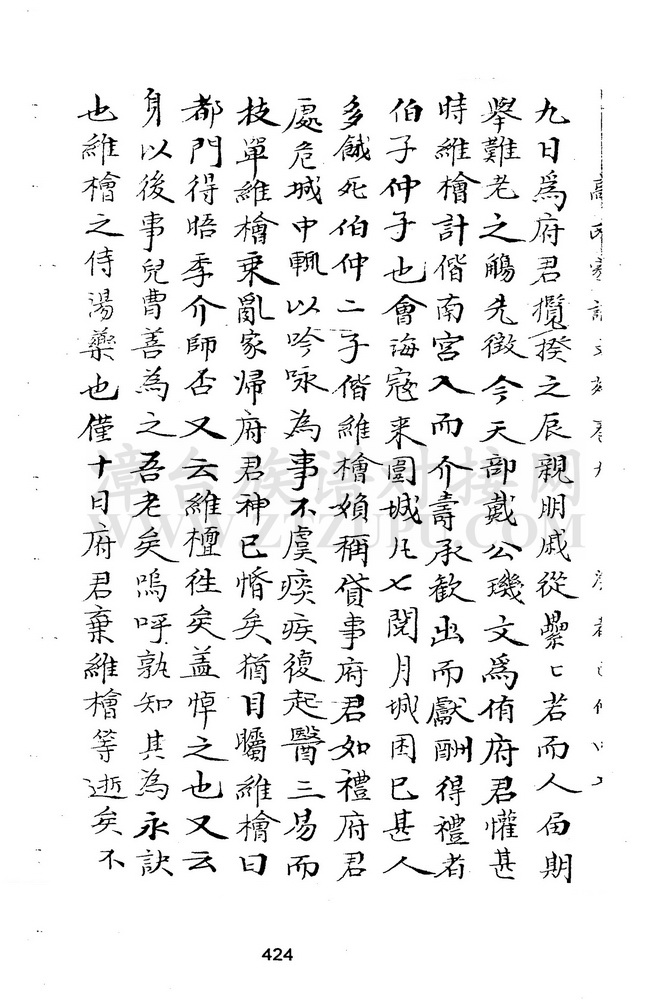 九日為府君攬揆之辰親朋戚從纍〻若而人屆期
舉難老之觴先徵今天部戴公璣文為侑府君懽甚
時維檜計偕南宮入而介壽承歡出而獻酬得禮者
伯子仲子也會海寇來圍城凡七閱月城困已甚人
多餓死伯仲二子偕維檜娘稱貸事府君如禮府君
處危城中輒以吟咏為事不虞痰疾復起醫三易而
技單維檜乘亂家歸府君神已惛矣猶目矚維檜曰
都門得晤季介師否又云維檀徃矣盖悼之也又云
身以後事兒曹善為之吾老矣嗚呼孰知其為永訣
也維檜之侍湯藥也僅十日府君棄維檜等逝矣不
漳台族谱对接网
WWW.ZTZUPU.COM
424